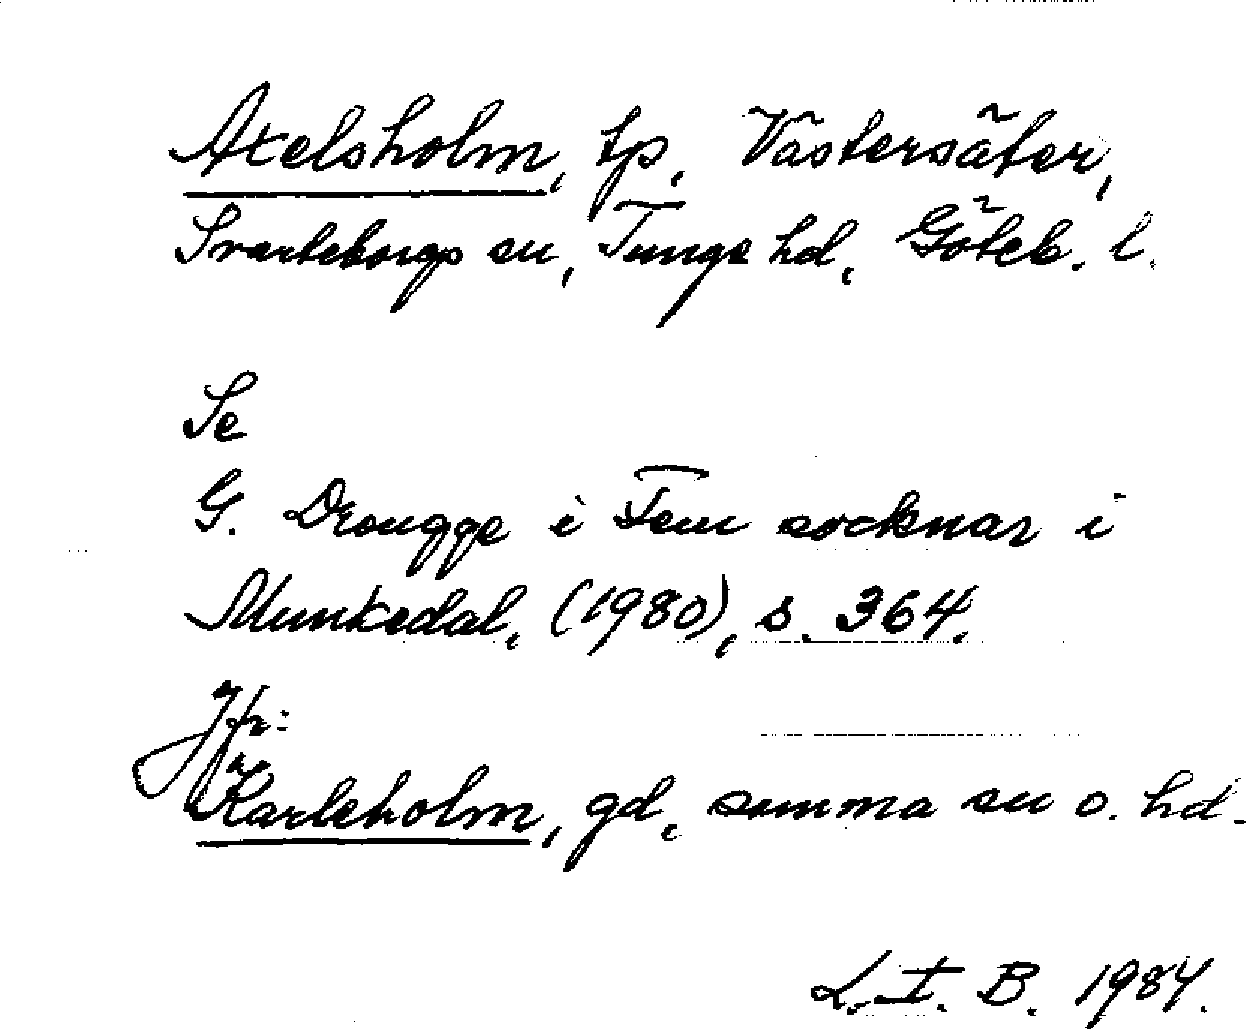 Axelsholm, tp, Västersäter,
Svarteborgs sn, Tunge hd, Göteb. l.
Se
G. Drougge i Fem socknar i
Munkedal, (1980), s. 364.
Jfr:
Karlsholm, gd, samma sn o. hd.
L. I. B. 1984.